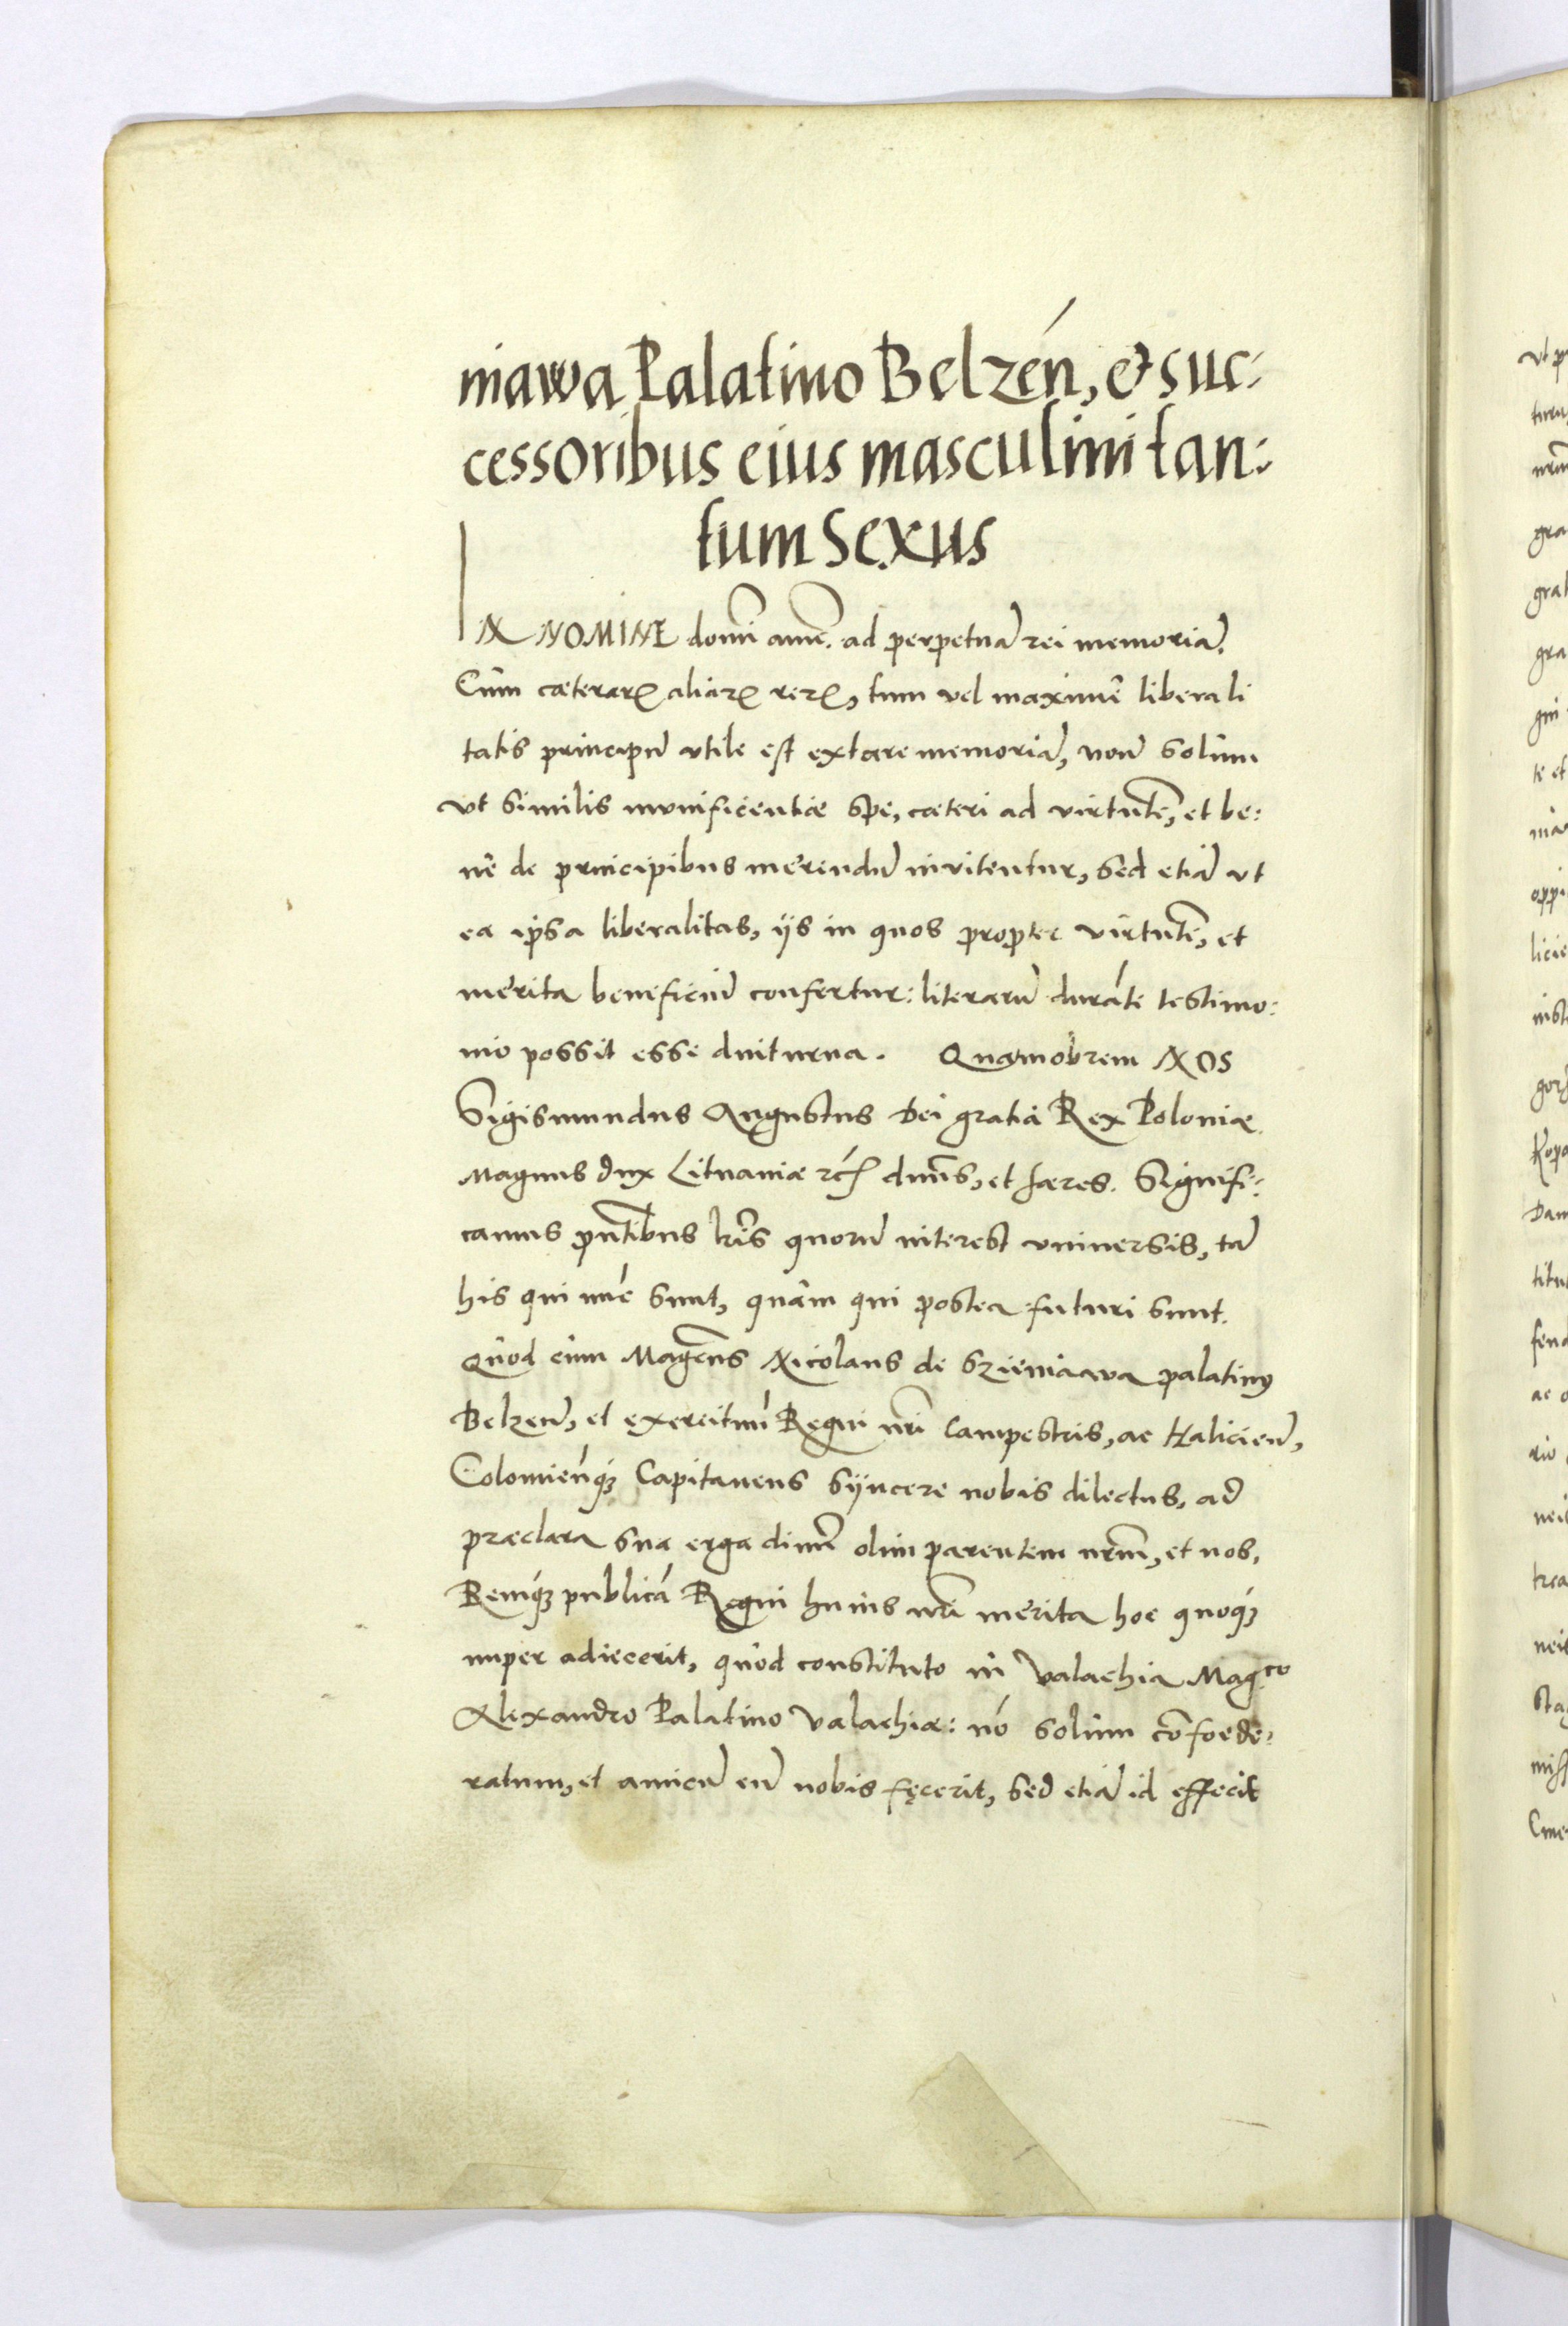 niawa Palatino Belzeń, et suc:
cessoribus eius masculini tan:
tum Sexus
IN NOMINE domī amē. ad perpetuā rei memoriā.
Cùm cæterarꝝ aliarꝝ rerꝝ, tum vel maximè liberali
tatis principū vtile est extare memoriā, non solùm
vt similis munificentiæ spe, cæteri ad virtutē, et be:
nè de principibus merendū invitentur, sed etiā vt
ea ipsa liberalitas, ijs in quos propter virtutē, et
merita beneficiū confertur: literarū durāte testimo:
nio possit esse diuturna. Quamobrem NOS
Sigismundus Augustus Dei gratia Rex Poloniæ
Magnus dux Lituaniæ rc̃ dnūs, et hæres. Signifi:
camus pñtibus lris̃ quorū interest vniuersis, tā
his qui nūc sunt, quàm qui postea futuri sunt.
Quòd cùm Magcūs Nicolaus de Szieniawa palatinꝰ
Belzeñ, et exercituū Regni nrĩ Campestris, ac Halicieñ,
Colomieñqꝫ Capitaneus syncere nobis dilectus, ad
præclara sua erga diuū olim parentem nrm̃, et nos,
Remqꝫ publicā Regni huius nrĩ merita hoc quoqꝫ
nuper adiecerit, quòd constituto in Valachia Mag.co
Alexandro Palatino Valachiæ: nō solùm cōfoede:
ratum, et amicū eū nobis fęcerit, sed etiā id effecit